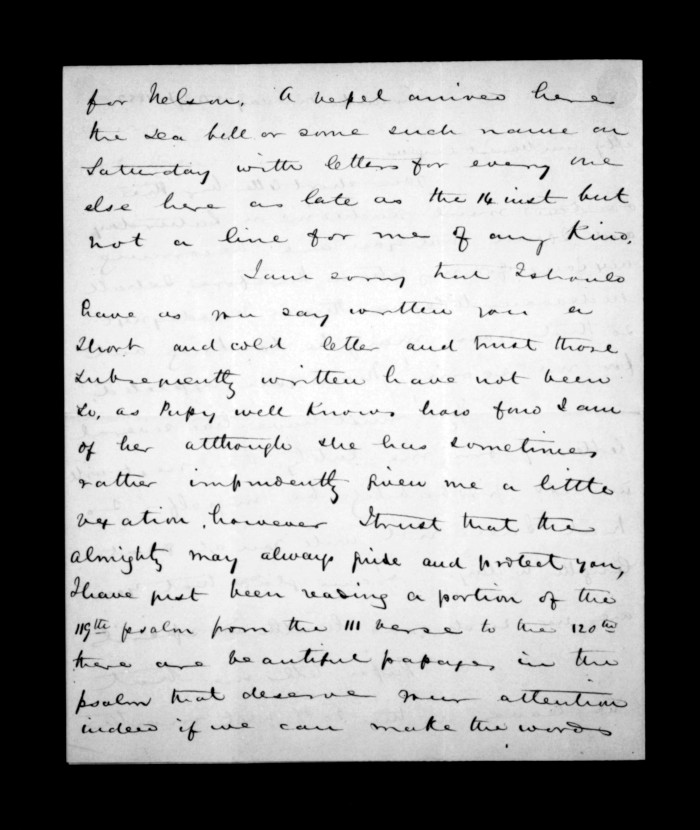 for Nelson. A vessel arrives here
the Sea bell or some such name on
Saturday with letters for every one
else here as late as the 16 inst but
not a line for me of any Kind.
I am sorry that I should
have as you say written you a
short and cold letter and trust those
subsequently written have not been
so, as Pupy well Knows how fond I am
of her although she has sometimes
rather imprudently given me a little
vexation, however I trust that the
almighty may always guide and protect you,
I have just been reading a portion of the
119th psalm from the 111 verse to the 120th
there are beautiful passages in the
psalm that deserve your attention
indeed if we can make the words